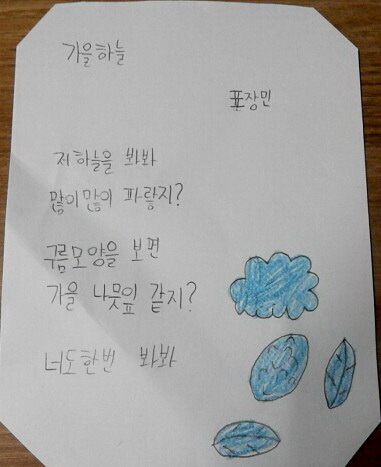 가을하늘
표장민
저하늘을 봐봐
많이많이 파랗지?
구름모양을 보면
가을 나뭇잎 같지?
너도한번 봐봐